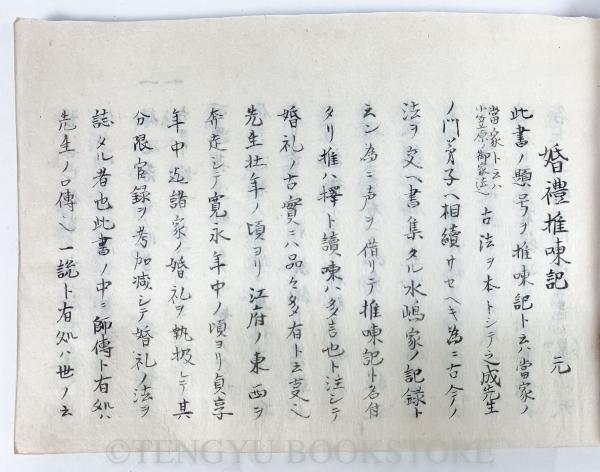 婚禮推㖦記　元
此書ノ題号ヲ推㖦記ト云ハ當家ノ
當家ト云ハ小笠原御家迄古法ヲ本トシテ之成先生
ノ門弟子ヘ相續サセヘキ為ニ古今ノ
法ヲ交ヘ書集タル水嶋家ノ記録ト
云ン為ニ声ヲ借リテ推㖦記ト名付
タリ推ハ擇ト讀㖦ハ多言也ト注シテ
婚礼ノ古實ニハ品々多有ト云
先生壮年ノ頃ヨリ江府ノ東西ヲ
奔走シテ寛永年中ノ頃ヨリ貞享
年中迄諸家ノ婚礼ヲ執扱シテ其
分限官録ヲ考加減シテ婚礼ノ法ヲ
誌タル者也此書ノ中ニ師傳ト有処ハ
先生ノ口傳也一説ト有処ハ世ノ云
©TENGYU BOOKSTORE